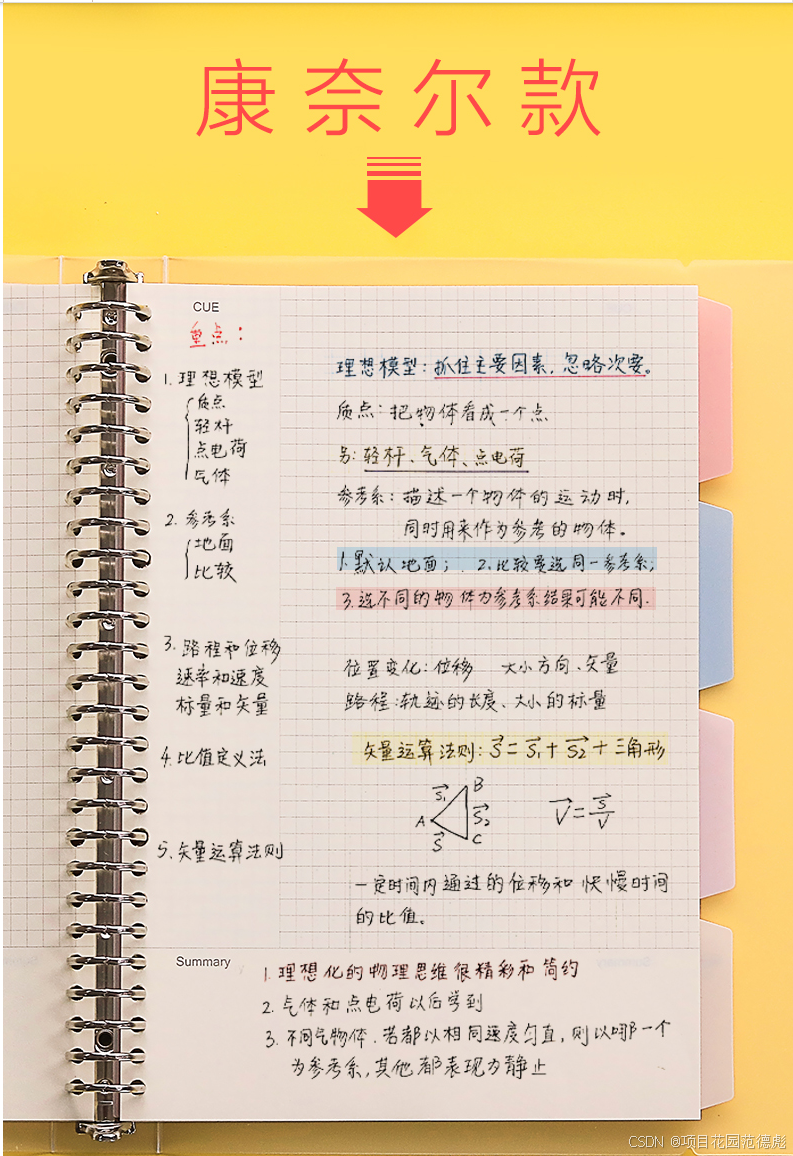 康奈尔款
CUE
重点：
1. 理想模型
质点
轻杆
点电荷
气体
2. 参考系
地面
比较
3. 路程和位移
速率和速度
标量和矢量
4. 比值定义法
5. 矢量运算法则
理想模型：抓住主要因素，忽略次要。
质点：把物体看成一个点
另：轻杆、气体、点电荷
参考系：描述一个物体的运动时，
同时用来作为参考的物体。
1. 默认地面； 2. 比较要选同一参考系；
3. 选不同的物体为参考系结果可能不同.
位置变化：位移 大小方向、矢量
路程：轨迹的长度、大小的标量
矢量运算法则：S⃗=S⃗₁+S⃗₂+三角形
S⃗₁
B
A
S⃗₂
S⃗
C
V⃗=S⃗/V
一定时间内通过的位移和快慢时间
的比值。
Summary
1. 理想化的物理思维很精彩和简约
2. 气体和点电荷以后学到
3. 不同气物体、若都以相同速度匀直，则以哪一个
为参考系，其他都表现为静止
CSDN @项目花园范德彪